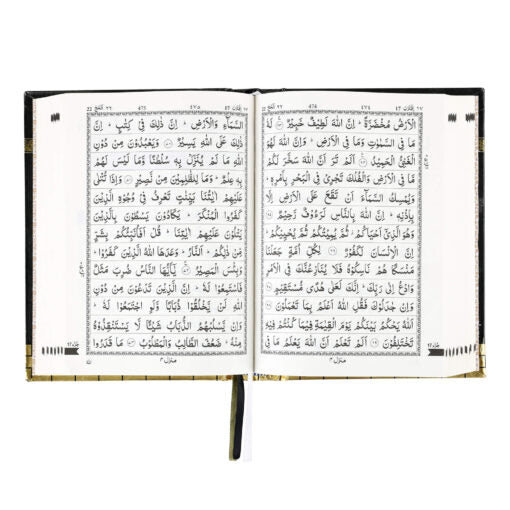 الحج ٢٢ 474 ٤٧٤ اقترب ١٧
الْاَرْضُ مُخْضَرَّةً ؕ اِنَّ اللّٰهَ لَطِيْفٌ خَبِيْرٌ ﴿٦٣﴾ لَهٗ
مَا فِي السَّمٰوٰتِ وَمَا فِي الْاَرْضِ ؕ وَاِنَّ اللّٰهَ لَهُوَ
الْغَنِيُّ الْحَمِيْدُ ﴿٦٤﴾ اَلَمْ تَرَ اَنَّ اللّٰهَ سَخَّرَ لَكُمْ
مَّا فِي الْاَرْضِ وَالْفُلْكَ تَجْرِيْ فِي الْبَحْرِ بِاَمْرِهٖ ؕ
وَيُمْسِكُ السَّمَآءَ اَنْ تَقَعَ عَلَى الْاَرْضِ اِلَّا
بِاِذْنِهٖ ؕ اِنَّ اللّٰهَ بِالنَّاسِ لَرَءُوْفٌ رَّحِيْمٌ ﴿٦٥﴾
وَهُوَ الَّذِيْٓ اَحْيَاكُمْ ؗ ثُمَّ يُمِيْتُكُمْ ثُمَّ يُحْيِيْكُمْ ؕ
اِنَّ الْاِنْسَانَ لَكَفُوْرٌ ﴿٦٦﴾ لِكُلِّ اُمَّةٍ جَعَلْنَا
مَنْسَكًا هُمْ نَاسِكُوْهُ فَلَا يُنَازِعُنَّكَ فِي الْاَمْرِ
وَادْعُ اِلٰى رَبِّكَ ؕ اِنَّكَ لَعَلٰى هُدًى مُّسْتَقِيْمٍ ﴿٦٧﴾
وَاِنْ جٰدَلُوْكَ فَقُلِ اللّٰهُ اَعْلَمُ بِمَا تَعْمَلُوْنَ ﴿٦٨﴾
اَللّٰهُ يَحْكُمُ بَيْنَكُمْ يَوْمَ الْقِيٰمَةِ فِيْمَا كُنْتُمْ فِيْهِ
تَخْتَلِفُوْنَ ﴿٦٩﴾ اَلَمْ تَعْلَمْ اَنَّ اللّٰهَ يَعْلَمُ مَا فِي
منزل ٤
الحج ٢٢ 475 ٤٧٥ اقترب ١٧
السَّمَآءِ وَالْاَرْضِ ؕ اِنَّ ذٰلِكَ فِيْ كِتٰبٍ ؕ اِنَّ
ذٰلِكَ عَلَى اللّٰهِ يَسِيْرٌ ﴿٧٠﴾ وَيَعْبُدُوْنَ مِنْ دُوْنِ
اللّٰهِ مَا لَمْ يُنَزِّلْ بِهٖ سُلْطٰنًا وَّمَا لَيْسَ لَهُمْ
بِهٖ عِلْمٌ ؕ وَمَا لِلظّٰلِمِيْنَ مِنْ نَّصِيْرٍ ﴿٧١﴾ وَاِذَا تُتْلٰى
عَلَيْهِمْ اٰيٰتُنَا بَيِّنٰتٍ تَعْرِفُ فِيْ وُجُوْهِ الَّذِيْنَ
كَفَرُوا الْمُنْكَرَ ؕ يَكَادُوْنَ يَسْطُوْنَ بِالَّذِيْنَ
يَتْلُوْنَ عَلَيْهِمْ اٰيٰتِنَا ؕ قُلْ اَفَاُنَبِّئُكُمْ بِشَرٍّ
مِّنْ ذٰلِكُمْ ؕ اَلنَّارُ ؕ وَعَدَهَا اللّٰهُ الَّذِيْنَ كَفَرُوْا ؕ
وَبِئْسَ الْمَصِيْرُ ﴿٧٢﴾ يٰٓاَيُّهَا النَّاسُ ضُرِبَ مَثَلٌ
فَاسْتَمِعُوْا لَهٗ ؕ اِنَّ الَّذِيْنَ تَدْعُوْنَ مِنْ دُوْنِ
اللّٰهِ لَنْ يَّخْلُقُوْا ذُبَابًا وَّلَوِ اجْتَمَعُوْا لَهٗ ؕ
وَاِنْ يَّسْلُبْهُمُ الذُّبَابُ شَيْـًٔا لَّا يَسْتَنْقِذُوْهُ
مِنْهُ ؕ ضَعُفَ الطَّالِبُ وَالْمَطْلُوْبُ ﴿٧٣﴾ مَا قَدَرُوا
منزل ٤